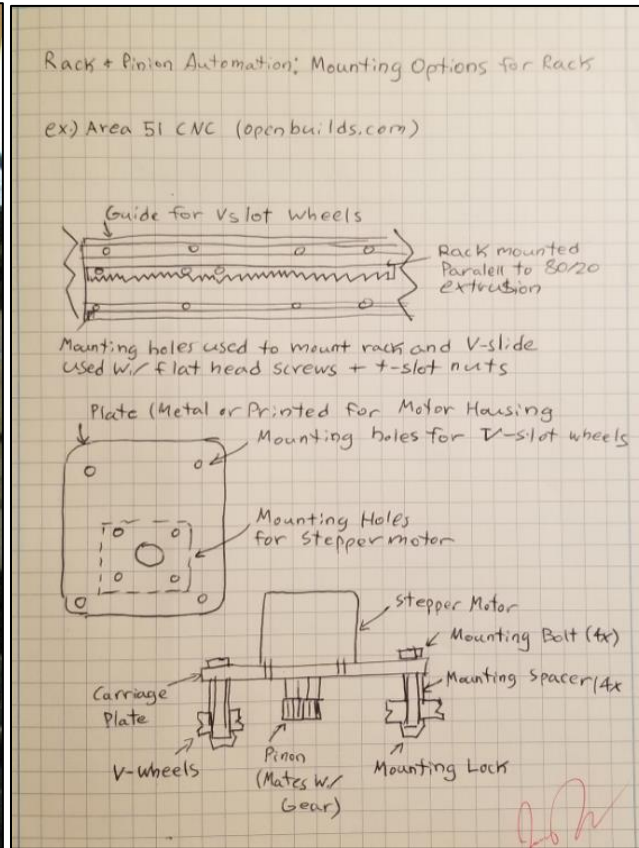 Rack + Pinion Automation: Mounting Options for Rack
ex.) Area 51 CNC (openbuilds.com)
Guide for Vslot wheels
Rack mounted
Paralell to 80/20
extrusion
Mounting holes used to mount rack and V-slide
used w/ flat head screws + t-slot nuts
Plate (Metal or Printed for Motor Housing
Mounting holes for V-slot wheels
Mounting Holes
for Stepper motor
Stepper Motor
Mounting Bolt (4x)
Mounting Spacer (4x
Carriage
Plate
V-wheels
Pinon
(Mates w/
Gear)
Mounting Lock